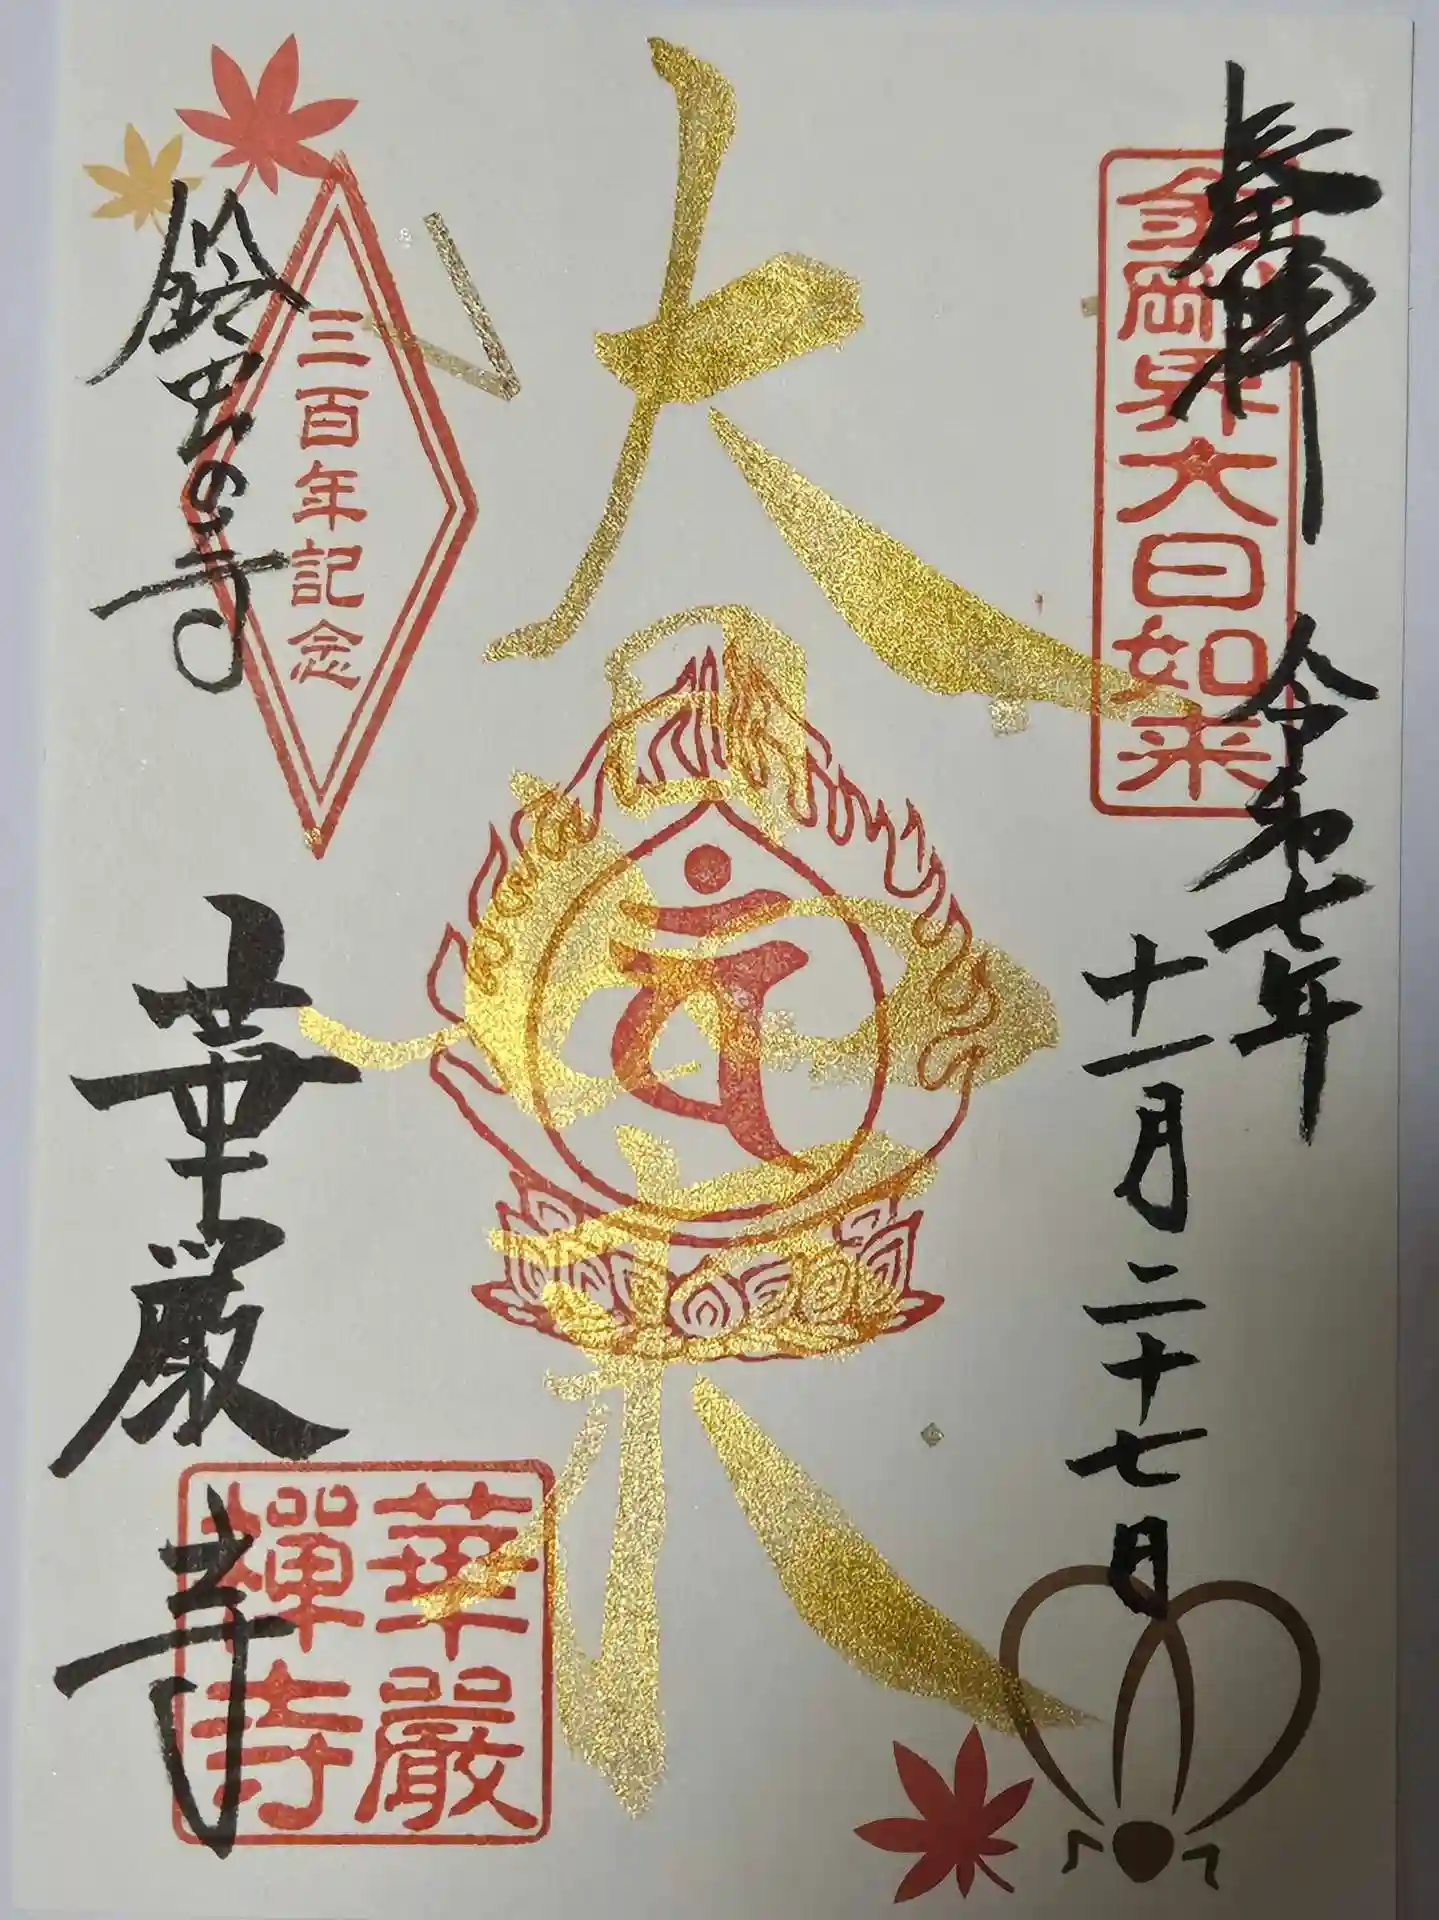 奉拝
金剛界大日如来
令和七年
十一月二十七日
大日如来
三百年記念
鈴虫の寺
華厳寺
華嚴
禅寺